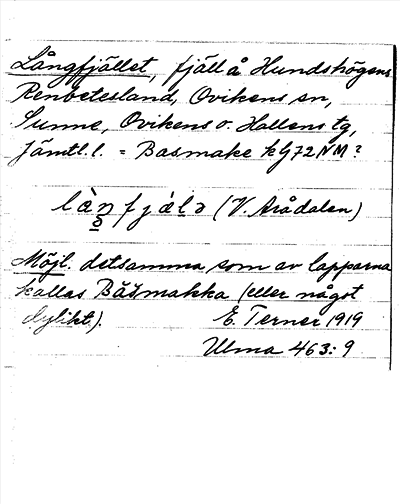 Långfjället, fjäll å Hundshögens
Renbetesland, Ovikens sn,
Sunne, Ovikens o. Hallens tg,
Jämtl. l. = Basmake kG72NM?
làn̥fjælə (V. Arådalen)
Möjl. detsamma, som av lapparna
kallas Båšmakka (eller något
dylikt.). E. Terner 1919
Ulma 463: 9